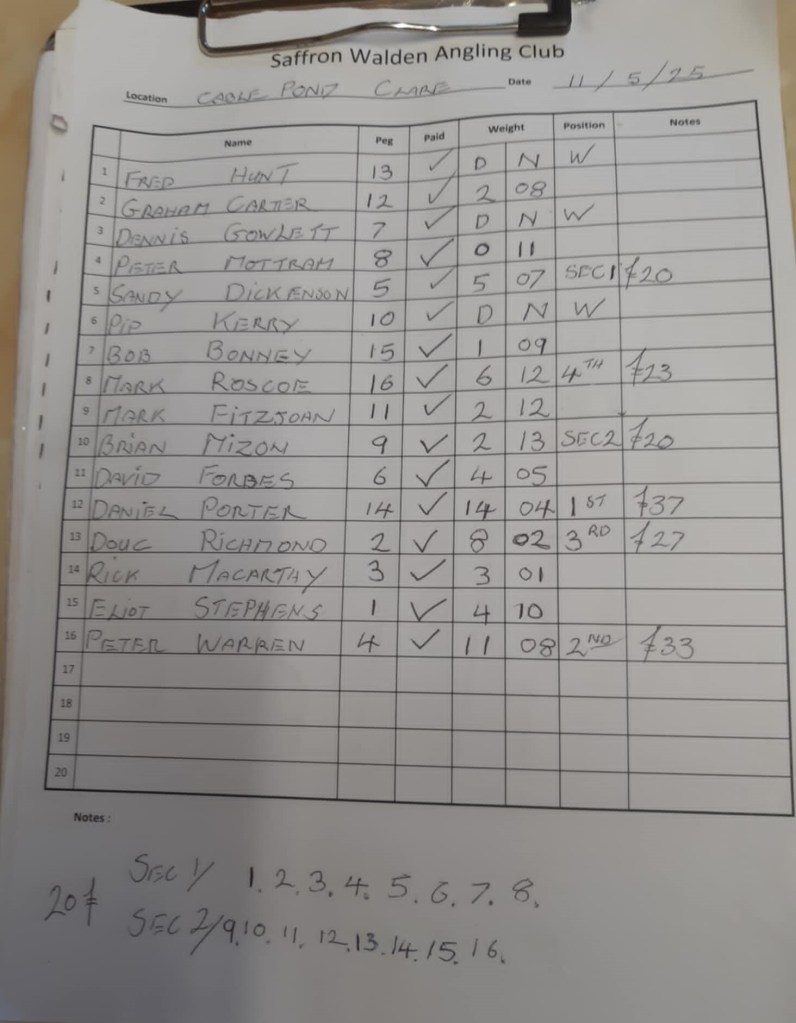 Saffron Walden Angling Club
Location CABLE POND CLARE Date 11/5/25
Name Peg Paid Weight Position Notes
1 FRED HUNT 13 ✓ D N W
2 GRAHAM CARTER 12 ✓ 2 08
3 DENNIS GOWLETT 7 ✓ D N W
4 PETER MOTTRAM 8 ✓ 0 11
5 SANDY DICKENSON 5 ✓ 5 07 SEC1 £20
6 PIP KERRY 10 ✓ D N W
7 BOB BONNEY 15 ✓ 1 09
8 MARK ROSCOE 16 ✓ 6 12 4TH £23
9 MARK FITZJOHN 11 ✓ 2 12
10 BRIAN MIZON 9 ✓ 2 13 SEC2 £20
11 DAVID FORBES 6 ✓ 4 05
12 DANIEL PORTER 14 ✓ 14 04 1ST £37
13 DOUG RICHMOND 2 ✓ 8 02 3RD £27
14 RICK MACARTHY 3 ✓ 3 01
15 ELIOT STEPHENS 1 ✓ 4 10
16 PETER WARREN 4 ✓ 11 08 2ND £33
17
18
19
20
Notes :
SEC 1/ 1. 2. 3. 4. 5. 6. 7. 8.
20£
SEC 2/ 9. 10. 11. 12. 13. 14. 15. 16.